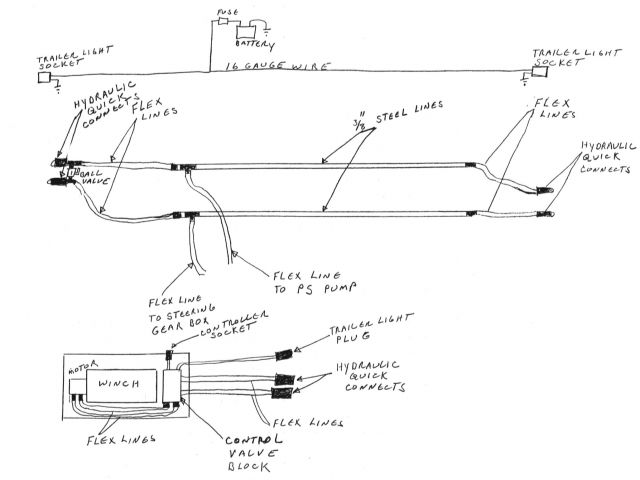 FUSE
BATTERY
TRAILER LIGHT
SOCKET
16 GAUGE WIRE
TRAILER LIGHT
SOCKET
HYDRAULIC
QUICK
CONNECTS
FLEX
LINES
3/8" STEEL LINES
FLEX
LINES
BALL
VALVE
HYDRAULIC
QUICK
CONNECTS
FLEX LINE
TO STEERING
GEAR BOX
FLEX LINE
TO PS PUMP
CONTROLLER
SOCKET
TRAILER LIGHT
PLUG
MOTOR
WINCH
HYDRAULIC
QUICK
CONNECTS
FLEX LINES
FLEX LINES
CONTROL
VALVE
BLOCK